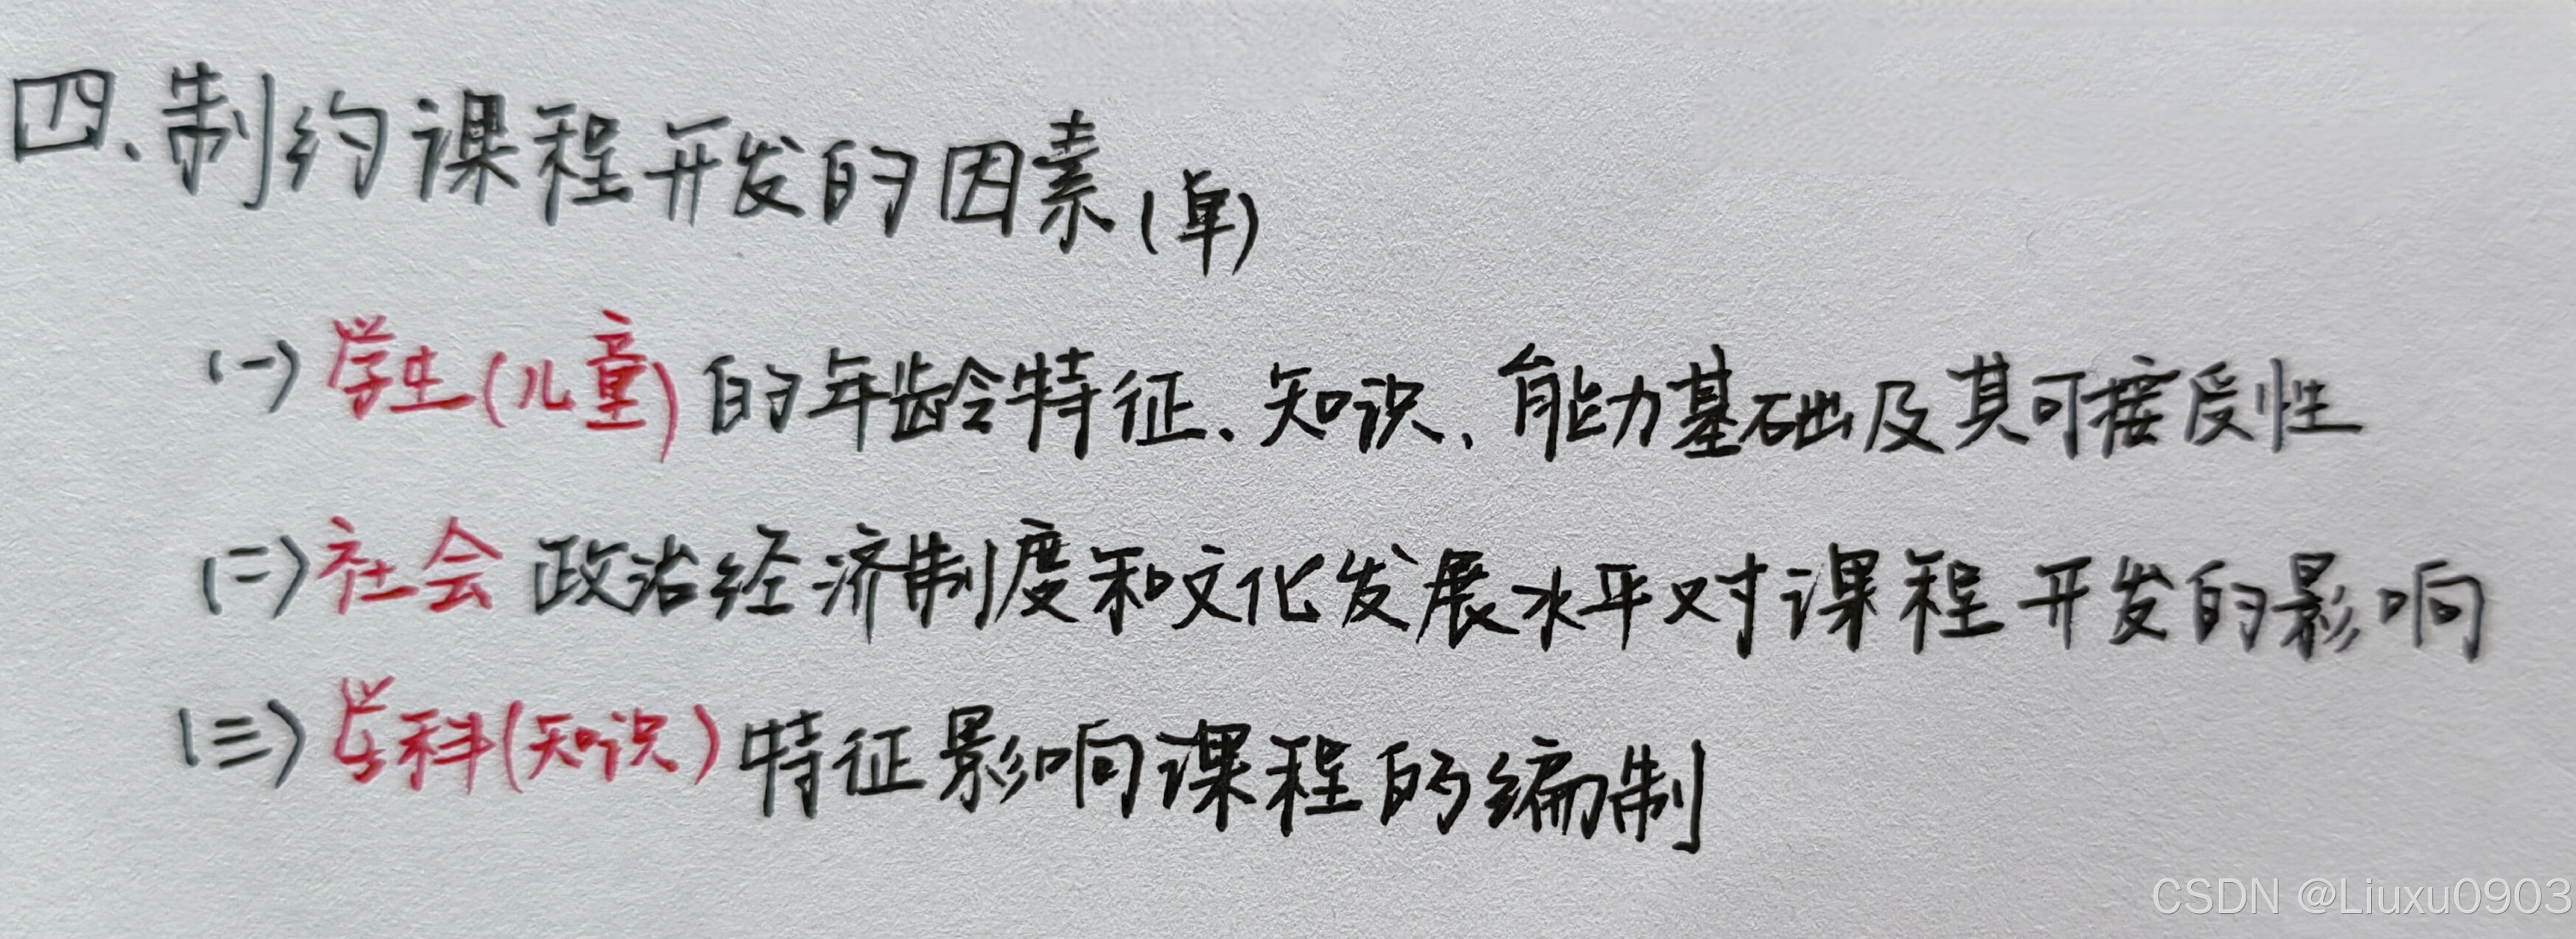 四.制约课程开发的因素(单)
(一)学生(儿童)的年龄特征、知识、能力基础及其可接受性
(二)社会政治经济制度和文化发展水平对课程开发的影响
(三)学科(知识)特征影响课程的编制
CSDN @Liuxu0903